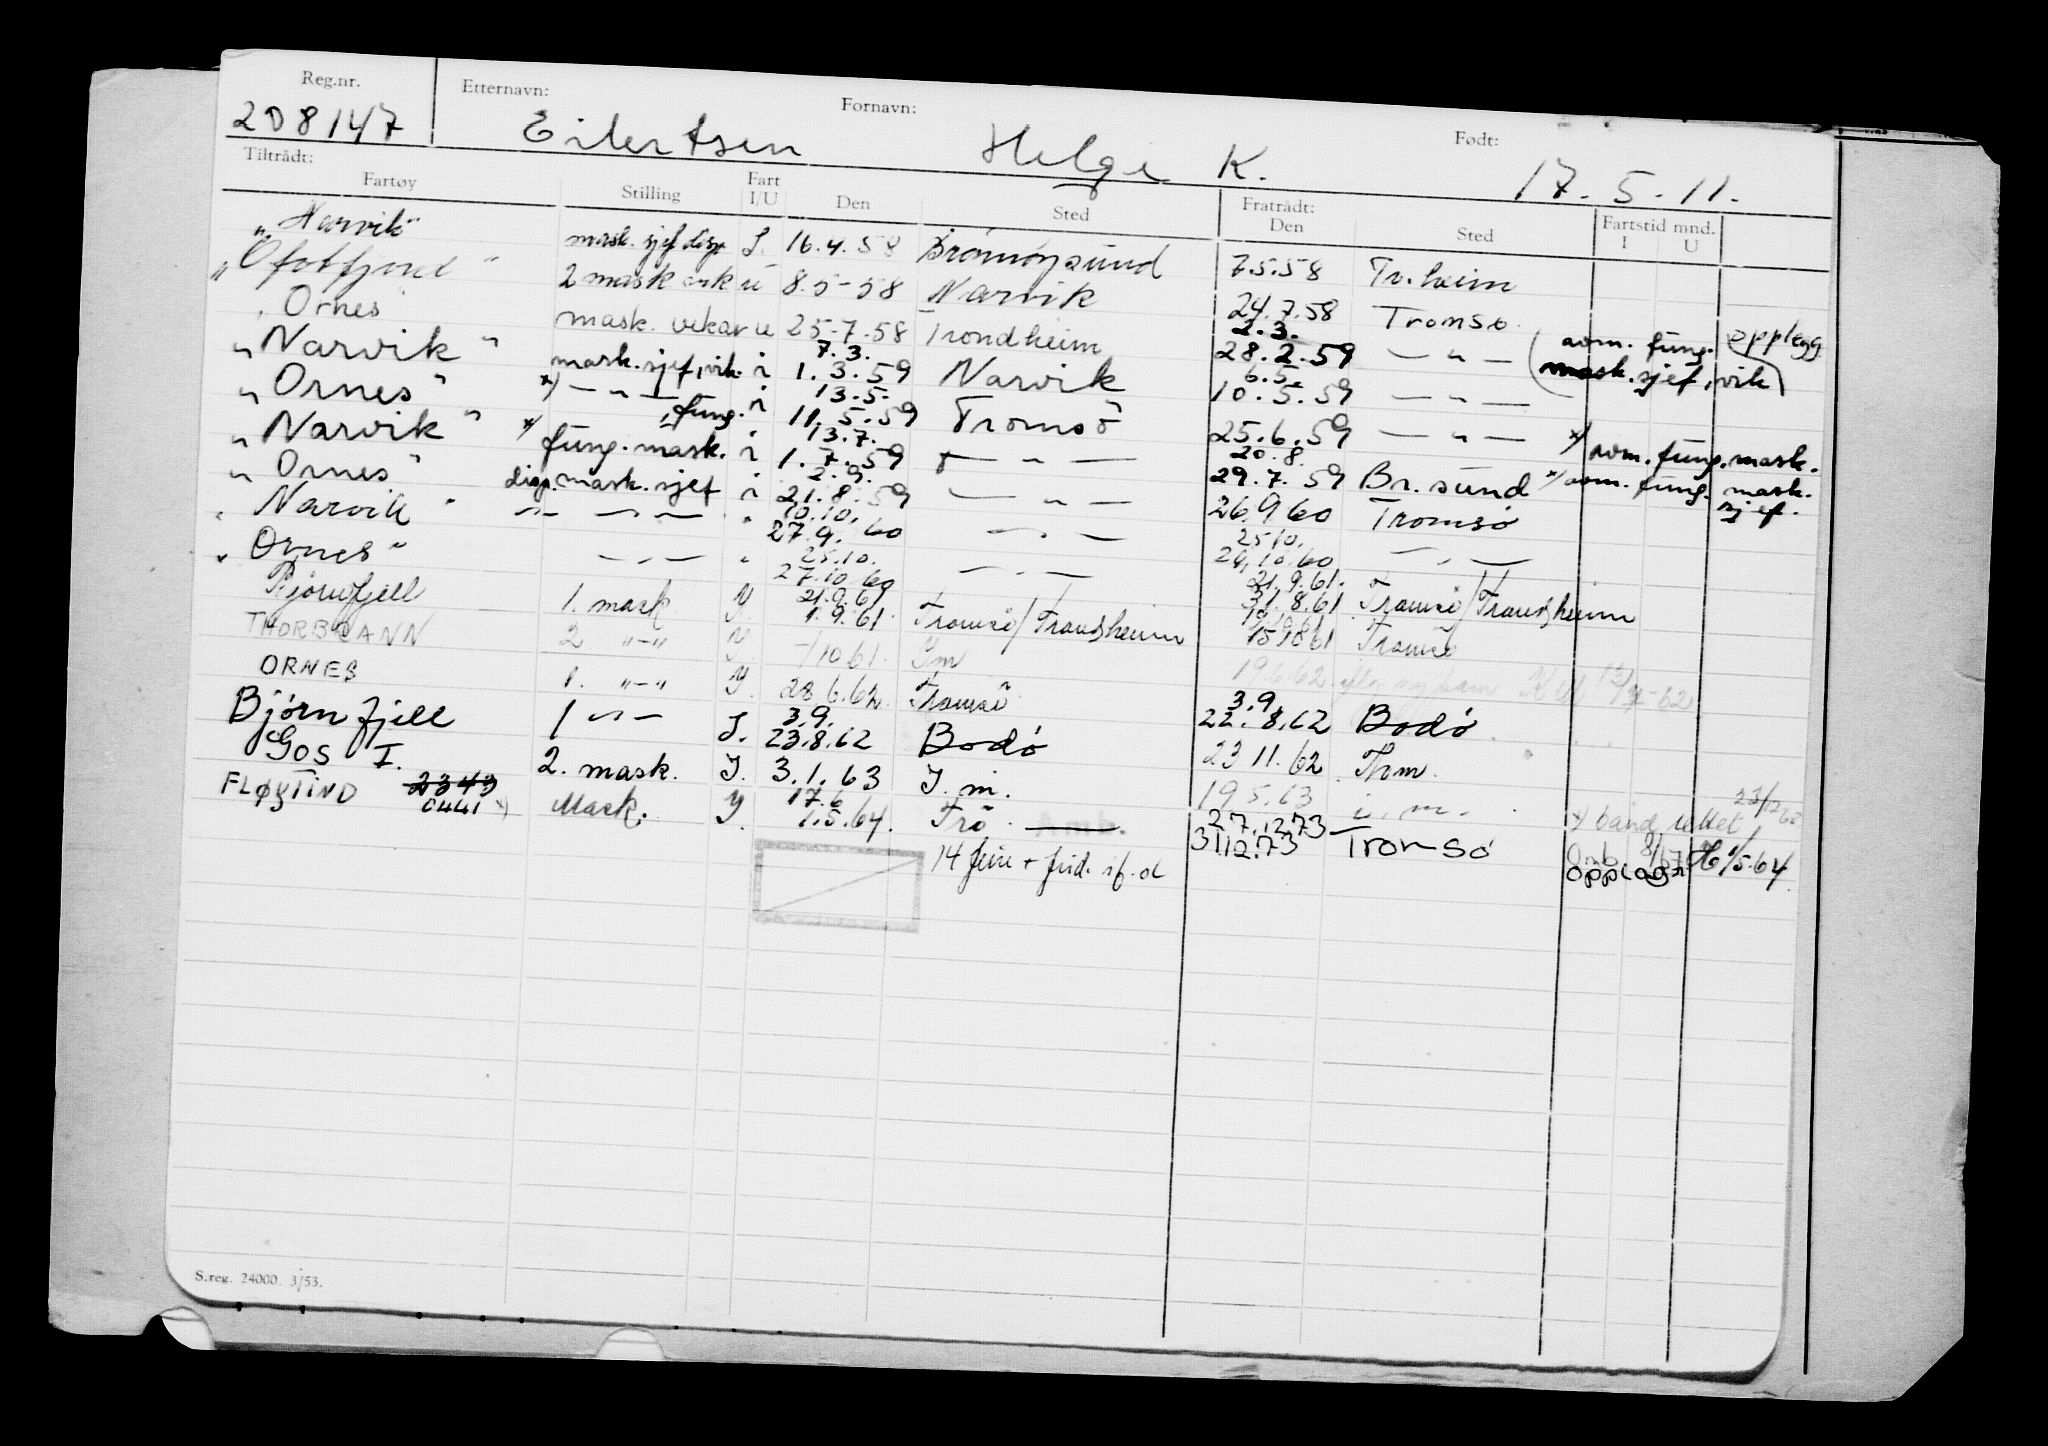 Reg.nr. Etternavn: Fornavn: Født:
208147 Eilertsen Helge K. 17.5.11.
Tiltrådt: Fratrådt:
Fartøy Stilling Fart I/U Den Sted Den Sted Fartstid mnd. I U
"Narvik" mask. sjef disp I. 16.4.58 Brönnöysund 7.5.58 Tr.heim
"Ofotfjord" 2 mask vik u 8.5-58 Narvik 24.7.58 Tromsø. opplegg
"Ornes mask. vikar u 25-7.58 Trondheim 2.3. 28.2.59 — " — (som. fung. mask.sjef, vik)
"Narvik" mask.sjef, vik. i 7.3. 1.3.59 Narvik 6.5. 10.5.59 — " —
"Ornes" x) — " — fung. i 13.5. 11.5.59 Tromsö 25.6.59 — " — x) som. fung. mask.
"Narvik" x) fung. mask. i 13.7. 1.7.59 — " — 20.8. 29.7.59 Br.sund x) som. fung. mask. sjef.
"Ornes" disp. mask. sjef i 2.9. 21.8.59 — " — 26.9 60 Tromsø
"Narvik" — " — " 10.10. 27.9.60 — " — 25.10. 24.10.60 — " —
"Ornes" — " — " 25.10. 27.10.60 — " — 21.9.61. 31.8.61 Tromsø/Trondheim
Bjørnfjell 1. mask. I. 21.9.61 1.9.61. Tromsø/Trondheim 15 10 61 Tromsø
THORBRANN 2 "-" I -/10 61. Im 19.6 62
ORNES 1. "-" I. 28.6.62. Tromsø 3.9. 22.8.62 Bodö
Bjørnfjell 1 — " — I. 3.9. 23.8.62 Bodö 23 11.62 Thm.
Gos I. 2. mask. I. 3.1.63 I. m. 19 5.63 i. m.
FLØYTIND 2343 0441 x) Mask. I. 17.6 1.5.64. Trö 27.12.73 Tromsø
14 feire + frid. 31.12.73 opplag 1/5.64
S.reg. 24000. 3/53.